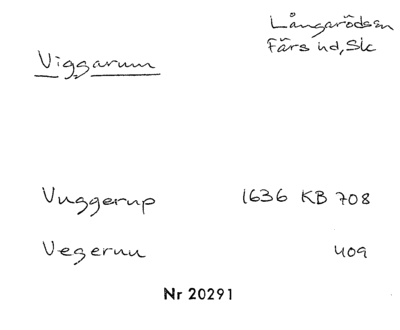 Långarödssn
Färs hd, Sk
Viggarum
Vuggerup 1636 KB 708
Vegerum 409
Nr 20291